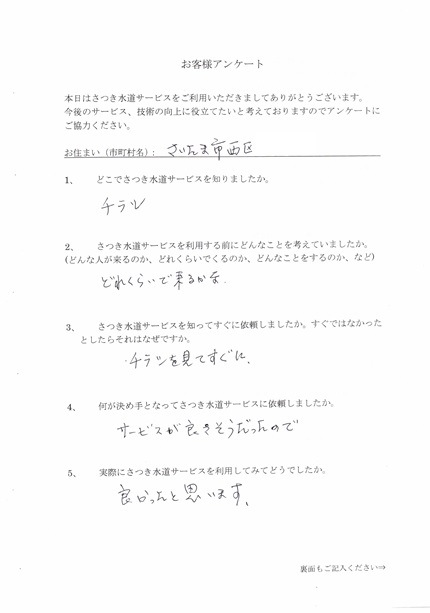 お客様アンケート
本日はさつき水道サービスをご利用いただきましてありがとうございます。
今後のサービス、技術の向上に役立てたいと考えておりますのでアンケートに
ご協力ください。
お住まい（市町村名）： さいたま市西区
1、 どこでさつき水道サービスを知りましたか。
チラシ
2、 さつき水道サービスを利用する前にどんなことを考えていましたか。
(どんな人が来るのか、どれくらいでくるのか、どんなことをするのか、など)
どれくらいで来るかな
3、 さつき水道サービスを知ってすぐに依頼しましたか。すぐではなかった
としたらそれはなぜですか。
・チラシを見てすぐに、
4、 何が決め手となってさつき水道サービスに依頼しましたか。
サービスが良さそうだったので
5、 実際にさつき水道サービスを利用してみてどうでしたか。
良かったと思います、
裏面もご記入ください⇒